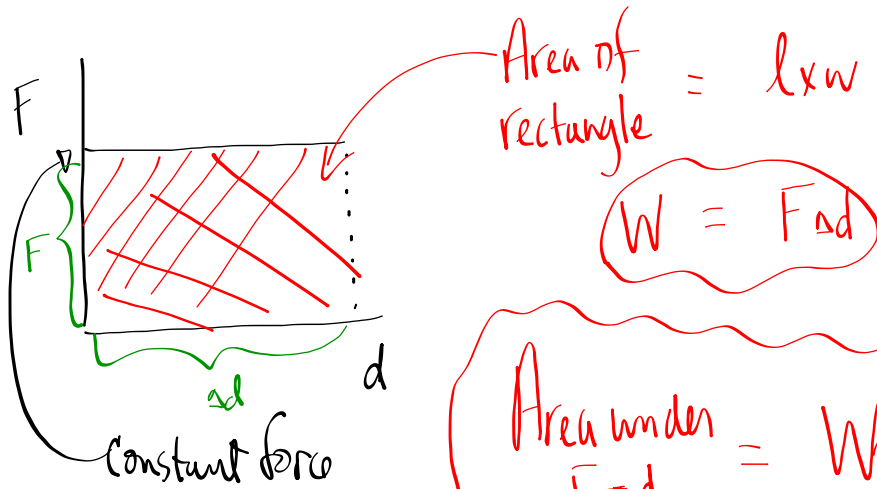 F
F
Δd
d
Constant force
Area of
rectangle
= l x w
W = FΔd
Area under
F-d
= W